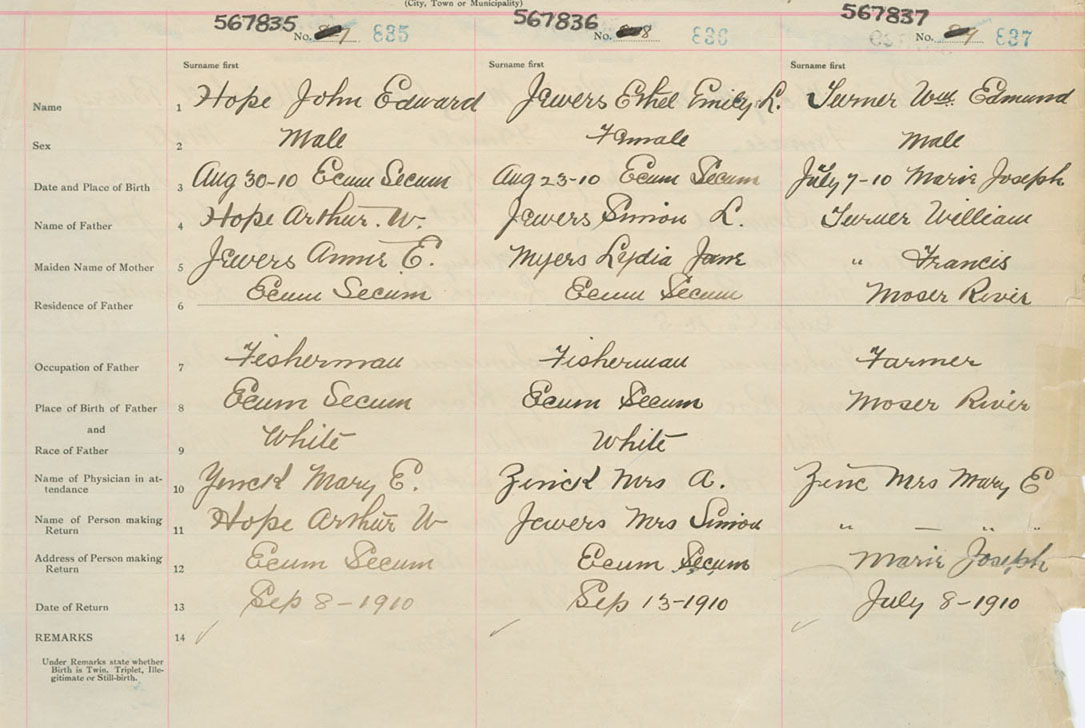 (City, Town or Municipality)
567835 567836 567837
No. 835 No. 836 No. 837
Surname first Surname first Surname first
Name 1 Hope John Edward Jewers Ethel Emily L. Turner Wm. Edmund
Sex 2 Male Female Male
Date and Place of Birth 3 Aug 30-10 Ecum Secum Aug 23-10 Ecum Secum July 7-10 Marie Joseph
Name of Father 4 Hope Arthur. W. Jewers Simion L. Turner William
Maiden Name of Mother 5 Jewers Annie E. Myers Lydia Jane " Francis
Residence of Father 6 Ecum Secum Ecum Secum Moser River
Occupation of Father 7 Fisherman Fisherman Farmer
Place of Birth of Father 8 Ecum Secum Ecum Secum Moser River
and
Race of Father 9 White White
Name of Physician in at-
tendance 10 Yinck Mary E. Zinck Mrs A. Zinc Mrs Mary E
Name of Person making
Return 11 Hope Arthur W Jewers Mrs Simion " — " "
Address of Person making
Return 12 Ecum Secum Ecum Secum Marie Joseph
Date of Return 13 Sep 8-1910 Sep 13-1910 July 8-1910
REMARKS 14
Under Remarks state whether
Birth is Twin, Triplet, Ille-
gitimate or Still-birth.